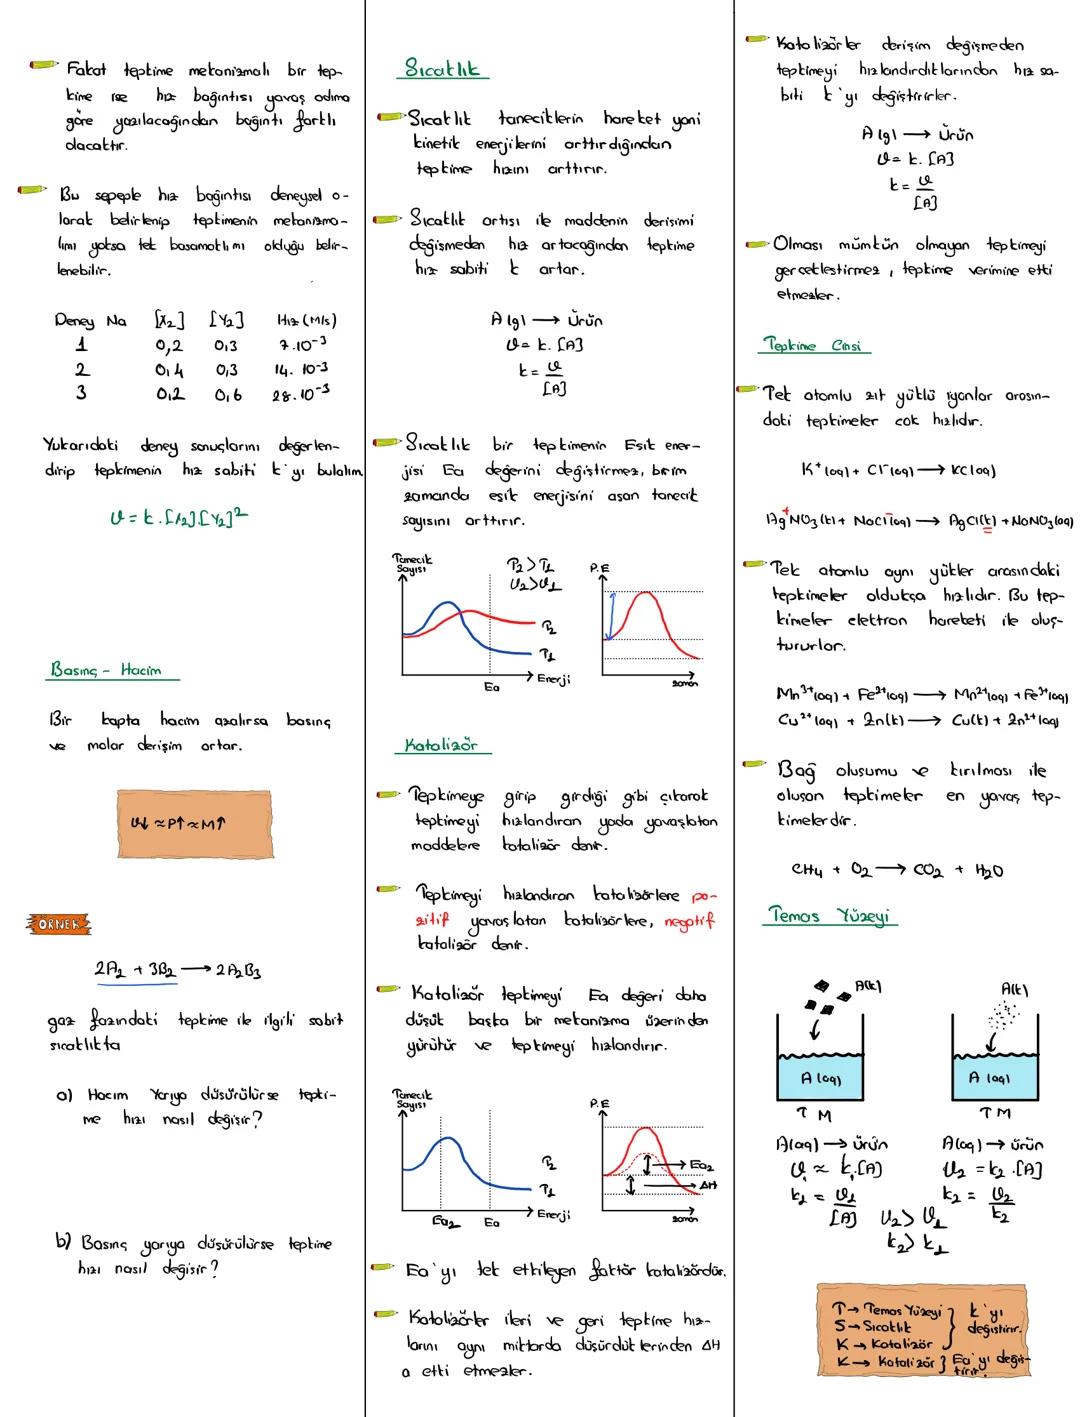 Fakat tepkime mekanizmalı bir tep-
kime ise hız bağıntısı yavaş adıma
göre yazılacağından bağıntı farklı
olacaktır.
Bu sepeple hız bağıntısı deneysel o-
larak belirlenip tepkimenin mekanizma-
lımı yoksa tek basamaklı mı olduğu belir-
lenebilir.
Deney No [X₂] [Y₂] Hız (M/s)
1 0,2 0,3 7.10⁻³
2 0,4 0,3 14. 10⁻³
3 0,2 0,6 28.10⁻³
Yukarıdaki deney sonuçlarını değerlen-
dirip tepkimenin hız sabiti k'yı bulalım
υ = k.[X₂].[Y₂]²
Basınç - Hacim
Bir kapta hacim azalırsa basınç
ve molar derişim artar.
V↓ ≈ P↑ ≈ M↑
ÖRNEK
2A₂ + 3B₂ → 2A₂B₃
gaz fazındaki tepkime ile ilgili sabit
sıcaklıkta
a) Hacim Yarıya düşürülürse tepki-
me hızı nasıl değişir?
b) Basınç yarıya düşürülürse tepkime
hızı nasıl değişir?
Sıcaklık
Sıcaklık taneciklerin hareket yani
kinetik enerjilerini arttırdığından
tepkime hızını arttırır.
Sıcaklık artışı ile maddenin derişimi
değişmeden hız artacağından tepkime
hız sabiti k artar.
A(g) → Ürün
υ = k. [A]
k = υ
[A]
Sıcaklık bir tepkimenin Eşik ener-
jisi Ea değerini değiştirmez, birim
zamanda eşik enerjisini aşan tanecik
sayısını arttırır.
Tanecik
Sayısı
T₂ > T₁
υ₂ > υ₁
T₂
T₁
Enerji
Ea
P.E
zaman
Katalizör
Tepkimeye girip girdiği gibi çıkarak
tepkimeyi hızlandıran yada yavaşlatan
maddelere katalizör denir.
Tepkimeyi hızlandıran katalizörlere po-
zitif yavaşlatan katalizörlere, negatif
katalizör denir.
Katalizör tepkimeyi Ea değeri daha
düşük başka bir mekanizma üzerinden
yürütür ve tepkimeyi hızlandırır.
Tanecik
Sayısı
T₂
T₁
Enerji
Ea₂ Ea
P.E
Ea₂
ΔH
zaman
Ea'yı tek etkileyen faktör katalizördür.
Katalizörler ileri ve geri tepkime hız-
larını aynı miktarda düşürdüklerinden ΔH
a etki etmezler.
Katalizörler derişim değişmeden
tepkimeyi hızlandırdıklarından hız sa-
biti k'yı değiştirirler.
A(g) → Ürün
υ = k. [A]
k = υ
[A]
Olması mümkün olmayan tepkimeyi
gerçekleştirmez, tepkime verimine etki
etmezler.
Tepkime Cinsi
Tek atomlu zıt yüklü iyonlar arasın-
daki tepkimeler çok hızlıdır.
K⁺(aq) + Cl⁻(aq) → KCl(aq)
Ag⁺NO₃(k) + NaCl⁻(aq) → AgCl(k) + NaNO₃(aq)
Tek atomlu aynı yükler arasındaki
tepkimeler oldukça hızlıdır. Bu tep-
kimeler elektron hareketi ile oluş-
tururlar.
Mn³⁺(aq) + Fe²⁺(aq) → Mn²⁺(aq) + Fe³⁺(aq)
Cu²⁺(aq) + Zn(k) → Cu(k) + Zn²⁺(aq)
Bağ oluşumu ve kırılması ile
oluşan tepkimeler en yavaş tep-
kimelerdir.
CH₄ + O₂ → CO₂ + H₂O
Temas Yüzeyi
A(k) A(k)
A(aq) A(aq)
T M T M
A(aq) → ürün A(aq) → ürün
υ₁ ≈ k₁.[A] υ₂ = k₂.[A]
k₁ = υ₁ k₂ = υ₂
[A] k₂
υ₂ > υ₁
k₂ > k₁
T → Temas Yüzeyi
S → Sıcaklık
K → Katalizör
k'yı
değiştirir.
K → Katalizör } Ea'yı değiş-
tirir.